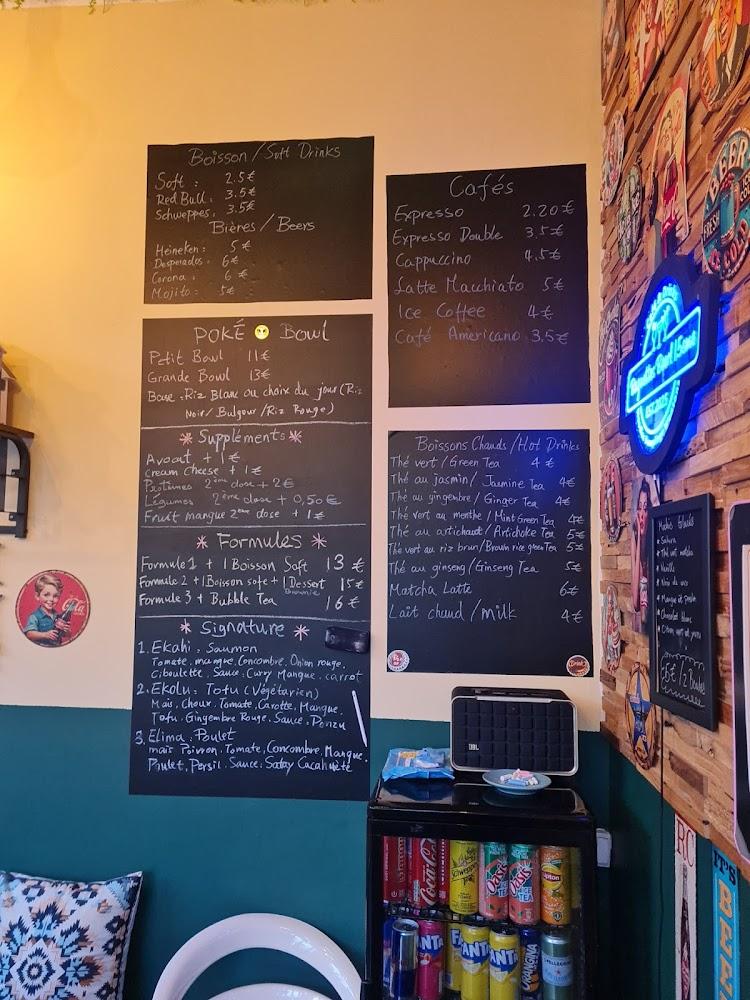 Boisson / Soft Drinks
Soft : 2.5€
Red Bull : 3.5€
Schweppes : 3.5€
Bières / Beers
Heineken : 5€
Desperados : 6€
Corona : 6€
Mojito : 5€
POKÉ Bowl
Petit Bowl 11€
Grande Bowl 13€
Base : Riz Blanc ou choix du jour (Riz
Noir / Bulgour / Riz Rouge)
* Suppléments *
Avocat + 1€
Cream cheese + 1€
Protéines 2ème dose + 2€
Légumes 2ème dose + 0,50€
Fruit mangue 2ème dose + 1€
* Formules *
Formule 1 + 1 Boisson Soft 13€
Formule 2 + 1 Boisson softe + 1 Dessert 15€
Brownie
Formule 3 + Bubble Tea 16€
* Signature *
1. Ekahi, Saumon
Tomate, mangue, Concombre, Onion rouge,
Ciboulette, Sauce, Curry Mangue, carrot
2. Ekolu, Tofu (Végétarien)
Mais, Choux, Tomate, Carotte, Mangue,
Tofu, Gingembre Rouge, Sauce, Ponzu
3. Elima, Poulet
mais Poivron, Tomate, Concombre, Mangue,
Poulet, Persil, Sauce : Satay Cacahuète
Cafés
Expresso 2.20€
Expresso Double 3.5€
Cappuccino 4.5€
Latte Macchiato 5€
Ice Coffee 4€
Café Americano 3.5€
Boissons Chauds / Hot Drinks
Thé vert / Green Tea 4€
Thé au jasmin / Jasmine Tea 4€
Thé au gingembre / Ginger Tea 4€
Thé vert au menthe / Mint Green Tea 4€
Thé au artichaut / Artichoke Tea 5€
Thé vert au riz brun / Brown rice green Tea 5€
Thé au ginseng / Ginseng Tea 5€
Matcha Latte 6€
Lait chaud / milk 4€
Mochis Glacés
Sakura
Thé vert matcha
Vanille
Noix de coco
Chocolat blanc
BEER
FRESH
COLD
JBL
Coca-Cola
Schweppes
Oasis
ICE TEA
Oasis
ICE TEA
Lipton
FANTA
FANTA
FANTA
ORANGINA
S.PELLEGRINO
R.C
IT'S
BEER